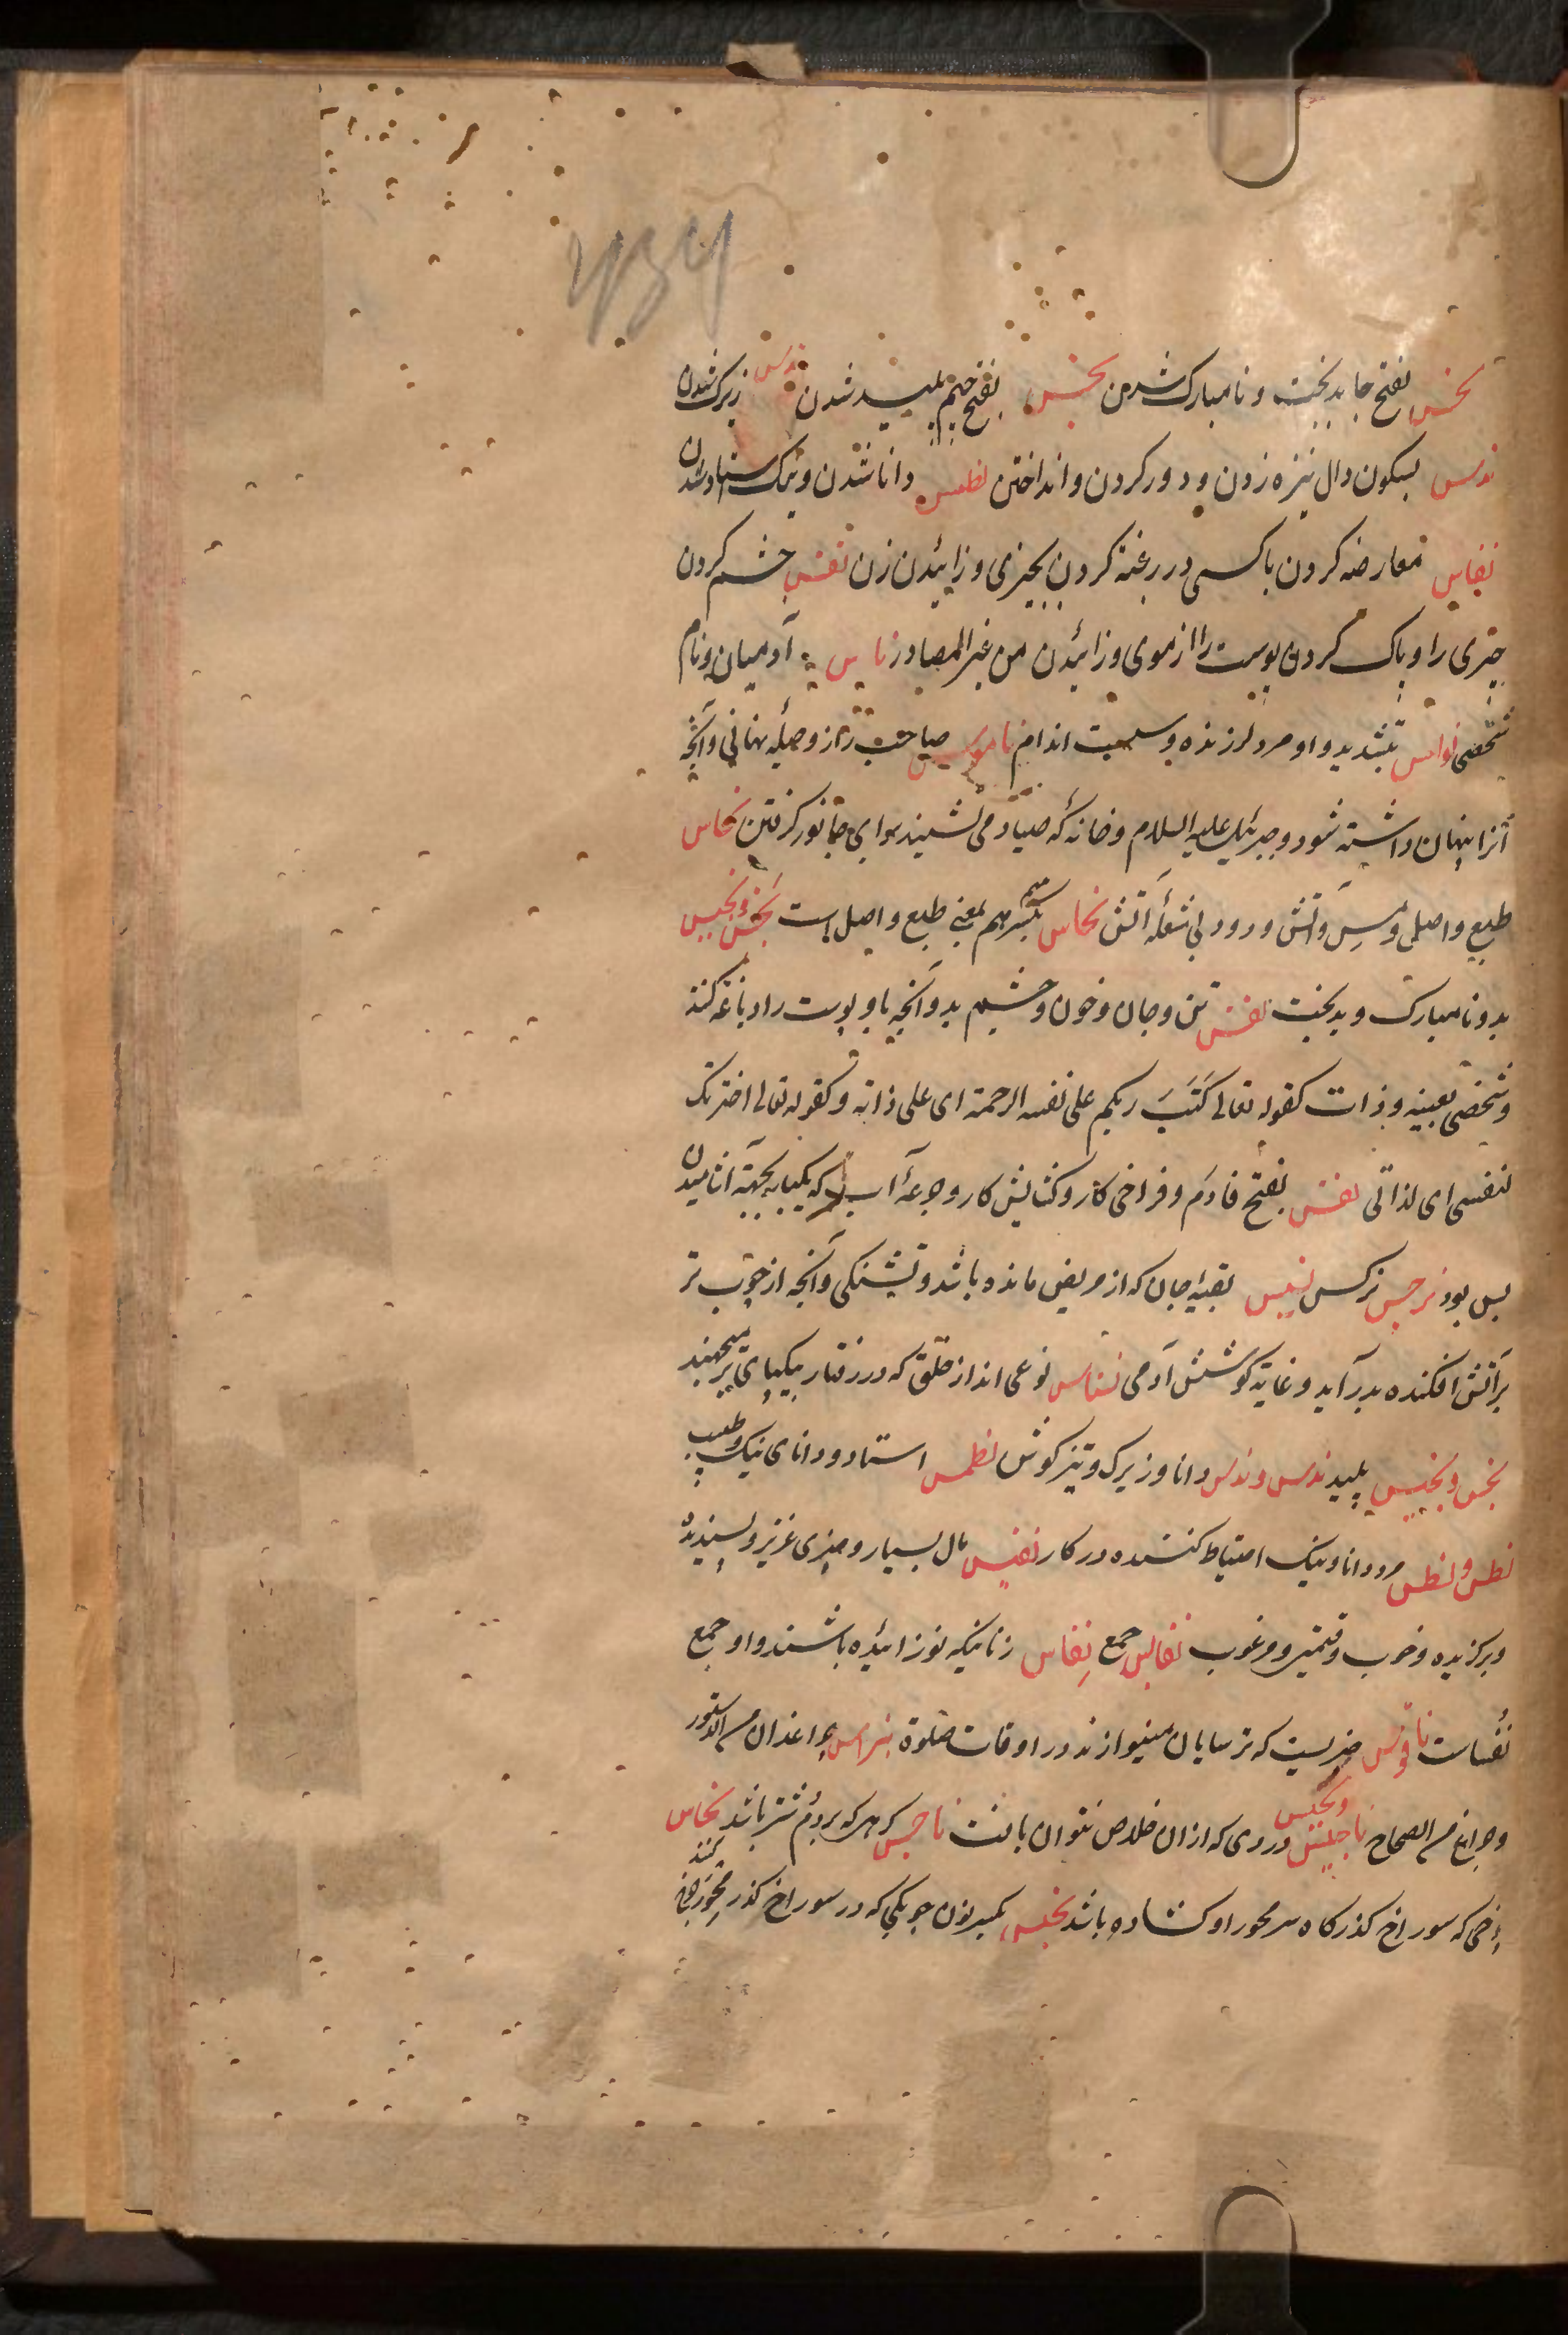 نحس بفتح حا بدبخت و نامبارک شدن نجس بفتح جیم پلید شدن ندس زیرک شدن
ندس بسکون دال نیزه زدن و دور کردن و انداختن نطس دانا شدن و نیک استاد شدن
نفاس معارضه کردن با کسی در رغبة کردن بچیزی و زائیدن زن نفس چشم کردن
چیزی را و پاک کردن پوست را از موی و زائیدن من غیر المصادر ناس آدمیان و نام
شخصی نواس بتشدید واو مرد لرزنده و سست اندام ناموس صاحب راز و حیله نهانی و آنچه
آنرا پنهان داشته شود و جبرئیل علیه السلام و خانه که صیاد می نشیند برای جانور گرفتن نحاس
طبع و اصل و مس و آتش و دود بی شعله آتش نحاس بکسر هم بمعنی طبع و اصل است نحس و نحیس
بد و نامبارک و بدبخت نفس تن و جان و خون و چشم بد و آنچه باو پوست را دباغة کنند
و شخصی بعینه و ذات کقوله تعالی کَتَبَ ربکم علی نفسه الرحمة ای علی ذاته و کقوله تعالی اخترتک
لنفسی ای لذاتی نفس بفتح فا دَم و فراخی کار و کشایش کار و جرعهٔ آب که یکبار بجهة آشامیدن
بس بود نرجس نرکس نسیس بقیه جان که از مریض مانده باشد و تشنکی و آنچه از چوب تر
بر آتش افکنده بدر آید و غایة کوشش آدمی نسناس نوعی اند از خلق که در رفتار بیکپای بر میجهند
نجس و نجیس پلید ندس و ندس دانا و زیرک و تیز کوش نطس استاد و دانای نیک و طبیب
نطس و نطس مرد دانا و نیک احتیاط کننده در کار نفیس مال بسیار و چیزی عزیز و پسندیده
و برکزیده و خوب و قیمتی و مرغوب نفایس جمع نِفاس زنانیکه نو زائیده باشند و او جمع
نُفَساست ناقوس چیزیست که ترسایان مینوازند در اوقات صلوة نبراس چراغدان من الدستور
و چراغ من الصحاح ناجس و نجیس دردی که ازان خلاص نتوان یافت ناحس کرهی که بر دُم شتر باشد نخاس
چرخی که سوراخ کذرکاه سر محور او کشاده باشد نخیس بکسر نون چوبکی که در سوراخ کذر محور چرخ کنند